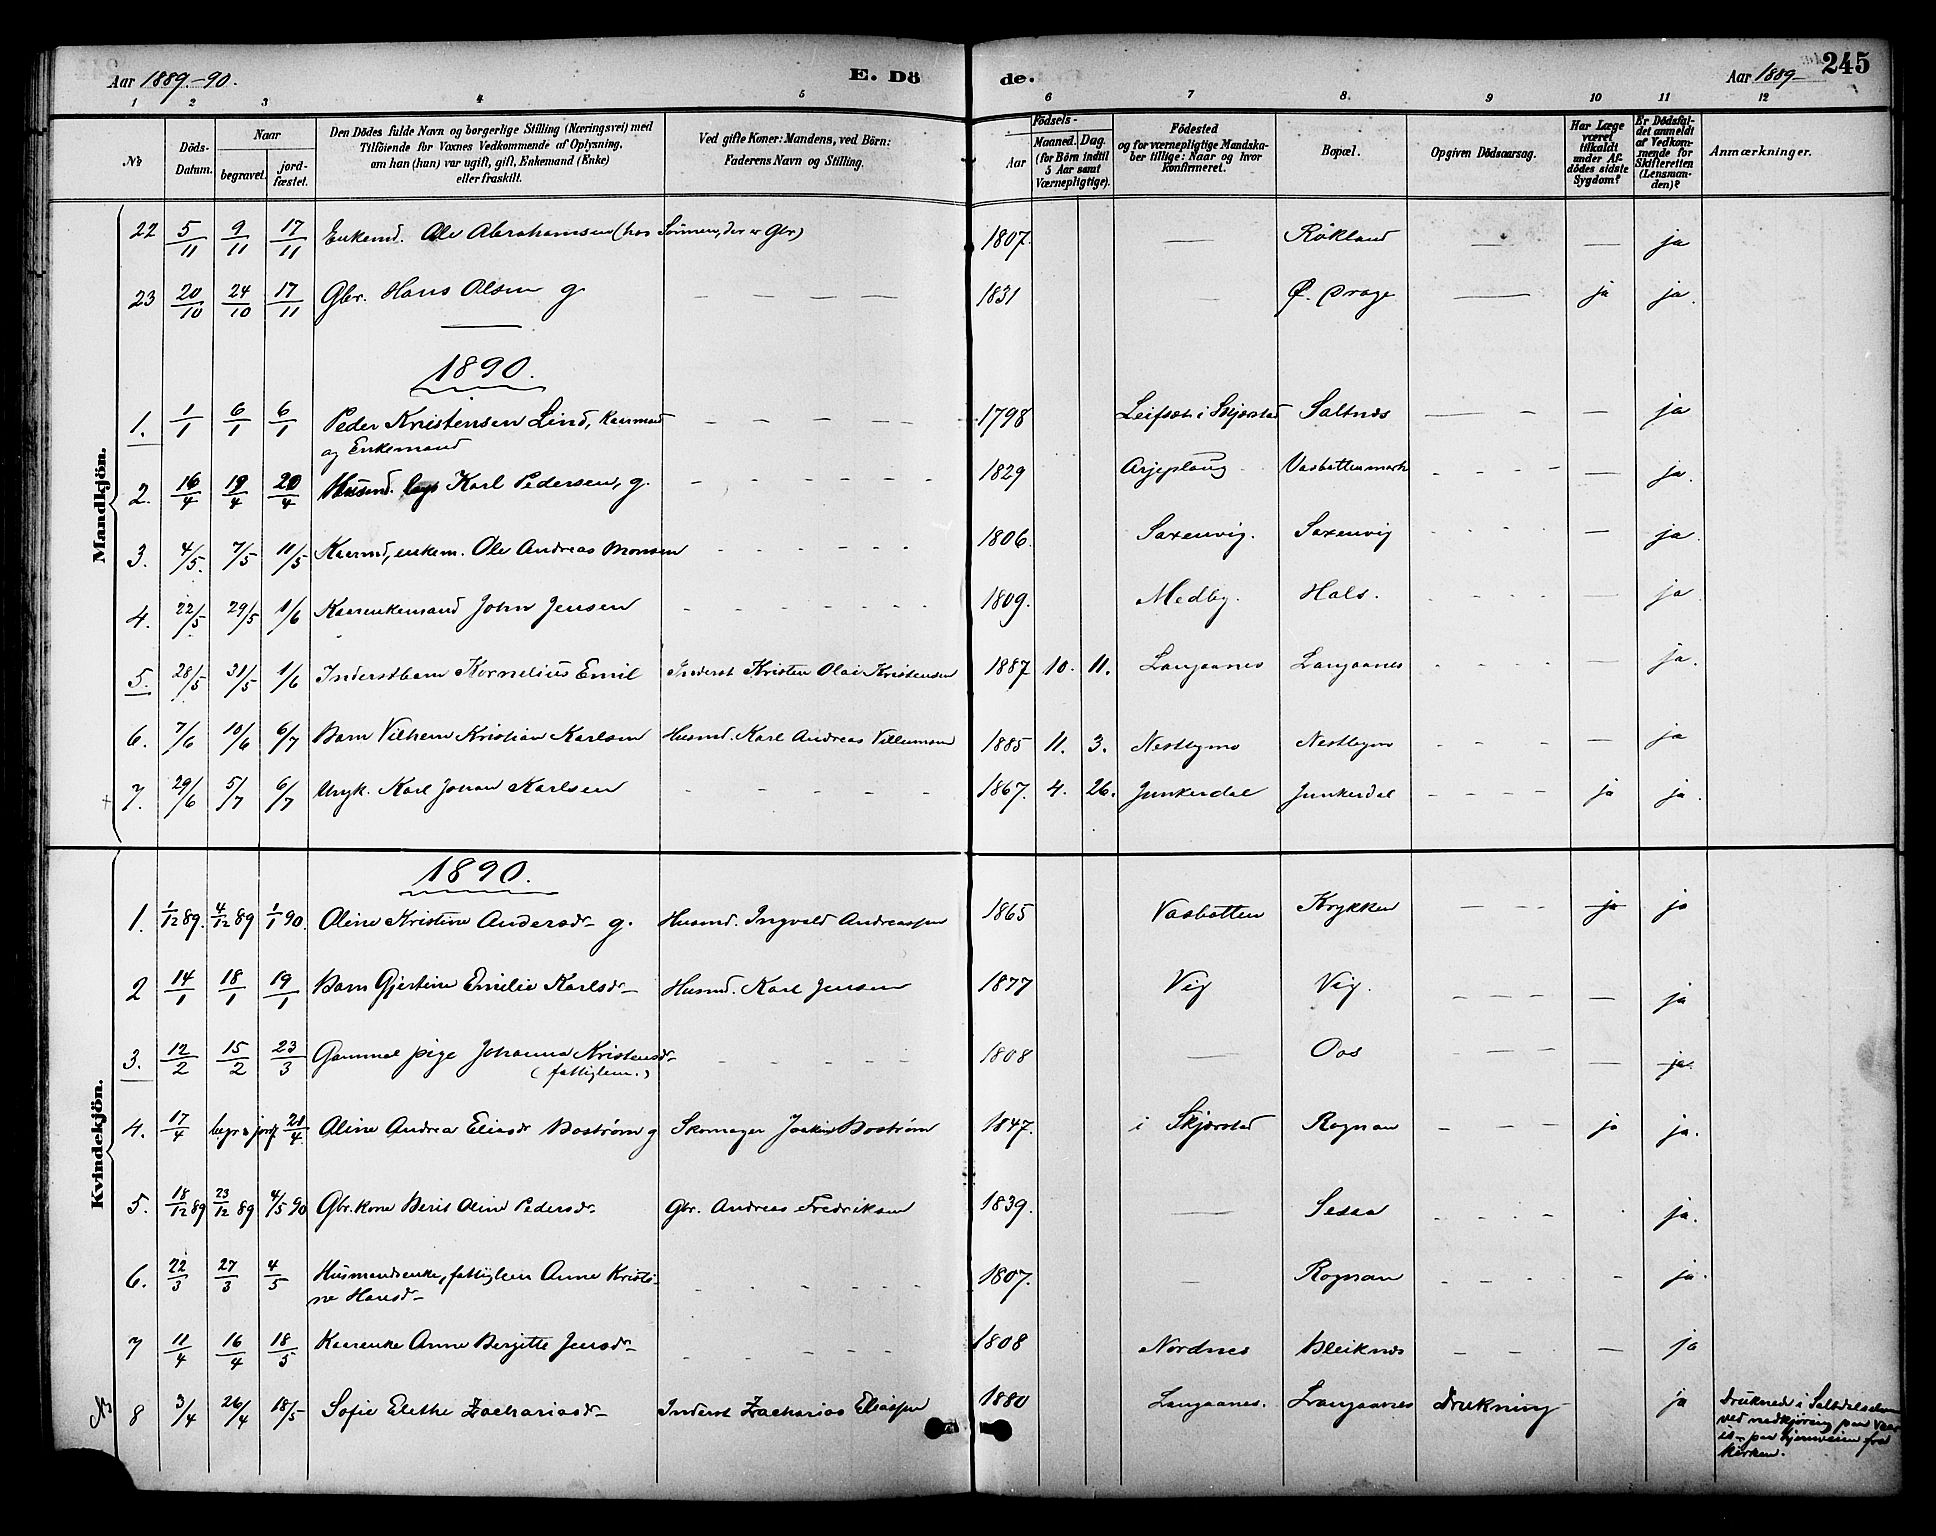 Aar 1889-90. E. Dö de. Aar 1889- 245
1 2 3 4 5 6 7 8. 9 10 11 12
№ Döds-Datum. Naar begravet. jordfæstet. Den Dödes fulde Navn og borgerlige Stilling (Næringsvei) med Tilföiende for Voxnes Vedkommende af Oplysning, om han (hun) var ugift, gift, Enkemand (Enke) eller fraskilt. Ved gifte Koner: Mandens, ved Börn: Faderens Navn og Stilling. Födsels- Aar Maaned. Dag. (for Börn indtil 5 Aar samt Værnepligtige). Födested og for værnepligtige Mandskaber tillige: Naar og hvor konfirmeret. Bopæl. Opgiven Dödsaarsag. Har Læge været tilkaldt under Afdödes sidste Sygdom? Er Dödsfaldet anmeldt af Vedkommende for Skifteretten (Lensmanden)? Anmærkninger.
Mandkjön.
22 5/11 9/11 17/11 Enkemd. Ole Abrahamsen (hos Sönnen, der er Gbr) 1807. — Rökland — — ja
23 20/10 24/10 17/11 Gbr. Hans Olsen g. — — — — 1831 — Ø. Drage — ja ja.
1890.
1. 1/1 6/1 6/1 Peder Kristensen Lind, Kaarmand og Enkemand - - - - 1798 Leifset i Skjerstad Saltnes — - — ja
2. 16/4 19/4 20/4 Husmd. Karl Pedersen, g. - - - - - 1829 Arjeplaug Vasbottenmark - - - - — ja.
3. 4/5. 7/5 11/5 Kaarmd, enkem. Ole Andreas Monsen - - - - - 1806. Saxenvig. Saxenvig - - - - — ja.
4. 22/5 29/5 1/6 Kaarenkemand John Jensen - - - - - - 1809. Medby. Hals. - - - - ja
5. 28/5 31/5 1/6 Inderstbarn Kornelius Emil Inderst Kristen Olai Kristensen 1887 10. 11. Langaanes Langaanes - - - - ja.
6. 7/6 10/6 6/7 Barn Vilhelm Kristian Karlsen Husmd. Karl Andreas Villumsen 1885 11. 3. Nestbymo Nestbymo - - - ja
7. 29/6 5/7 6/7 Ungk. Karl Johan Karlsen - - - - - 1867. 4. 26. Junkerdal Junkerdal - - - - ja ja.
Kvindekjön.
1890.
1. 1/12 89. 4/12 89 1/1 90. Oline Kristine Andersdr g. Husmd. Ingvald Andreassen 1865 Vasbotten Krykken — - - ja ja
2 14/1 18/1 19/1 Barn Gjertine Emilie Karlsdr Husmd. Karl Jensen 1877 Vig Vig. - - - — ja
3. 12/2 15/2 23/3 Gammel pige Johanna Kristensdr (fattiglem.) - - - - 1808 — Oos — - — ja.
4. 17/4 begr & jordf 20/4. Oline Andrea Eliasdr Boström g Skomager Joakim Boström 1847. i Skjerstad Rognan - - - ja ja.
5. 18/12 89 23/12 89 4/5 90 Gbr. kone Berit Oline Pedersdr Gbr. Andreas Fredriksen 1839. — Sesaa - - - - ja.
6. 22/3 27/3 4/5 Husmandsenke, fattiglem Anne Kristine Hansdr - - - - - 1807. — Rognan - - - - - ja.
7 11/4 16/4 18/5 Kaarenke Anne Bergitte Jensdr - - - - - 1808 Nordnes Bleiknes - - - — ja
8 3/4 26/4 18/5 Sofie Elethe Zachariasdr Inderst Zacharias Eliassen 1880 Langaanes. Langaanes Drukning ja Druknede i Saltdalselven
ved nedkjøring paa Vaar
is - paa hjemveien fra
Kirken.